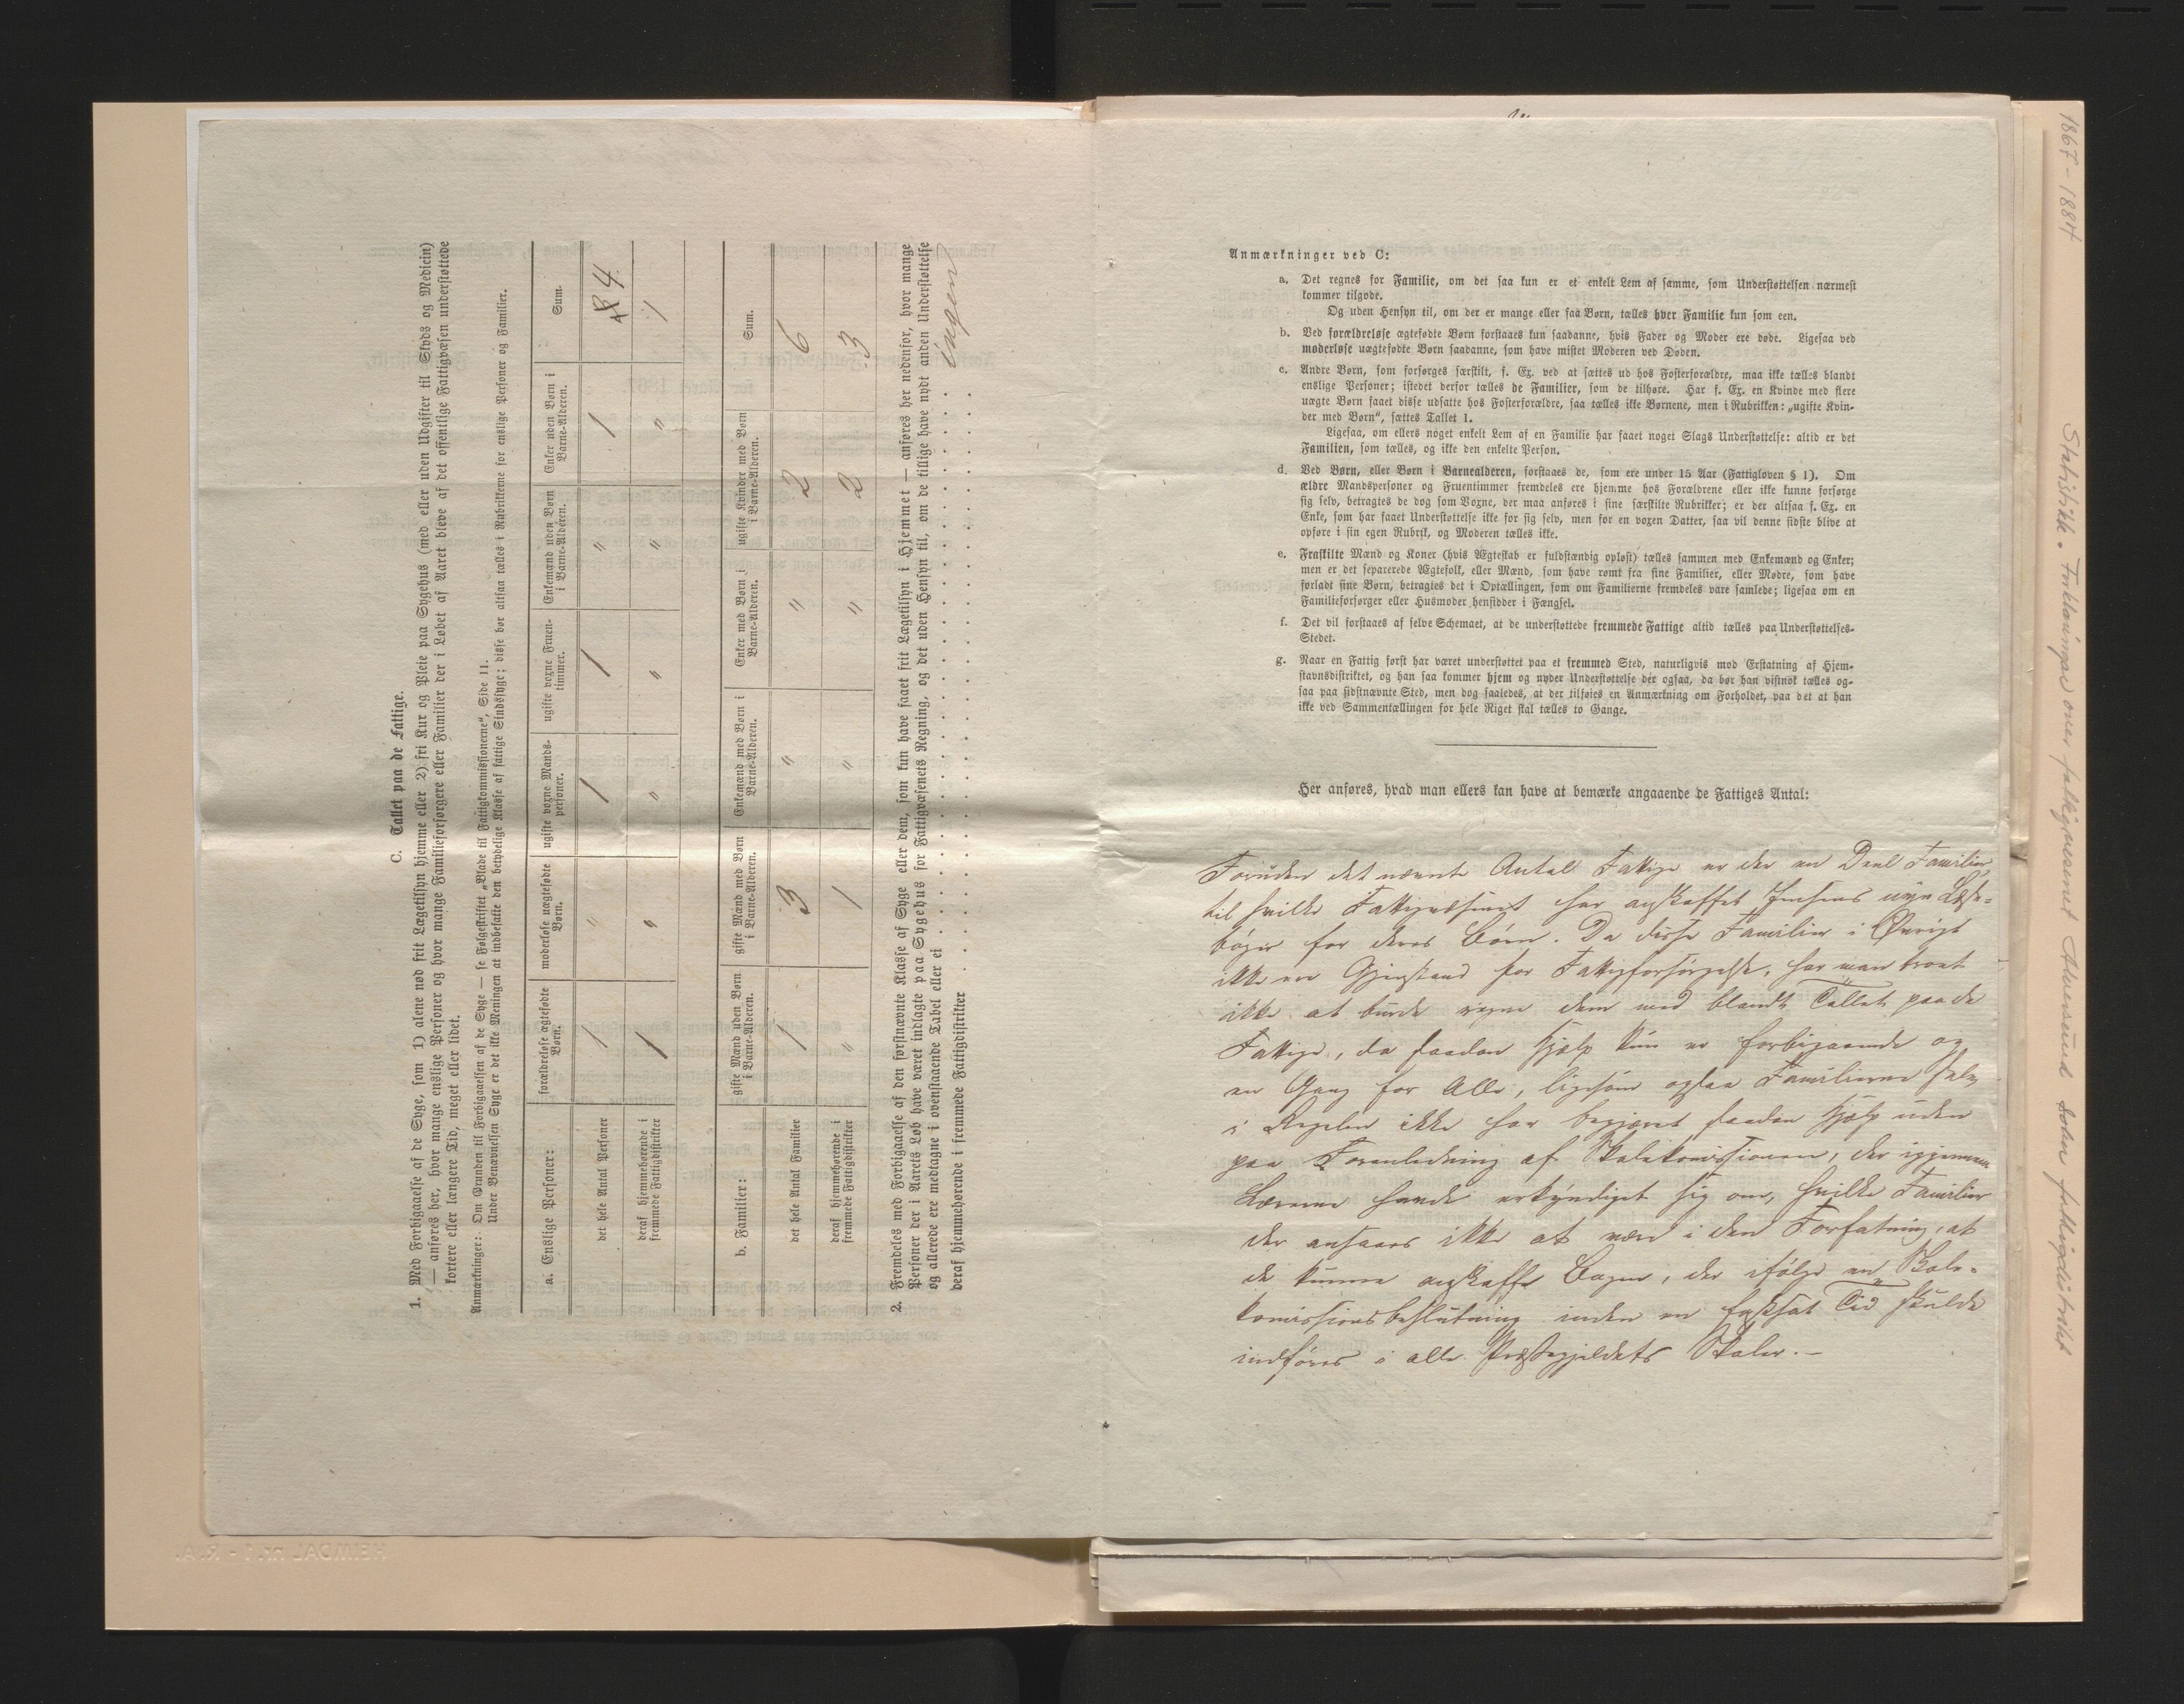 C. Tallet paa de Fattige.
1. Med Forbigaaelse af de Syge, som 1) alene nød frit Lægetilsyn hjemme eller 2) fri Kur og Pleie paa Sygehus (med eller uden Udgifter til Skyds og Medicin)
— anføres her, hvor mange enslige Personer og hvor mange Familieforsørgere eller Familier der i Løbet af Aaret bleve af det offentlige Fattigvæsen understøttede
kortere eller længere Tid, meget eller lidet.
Anmærkninger: Om Grunden til Forbigaaelsen af de Syge — se Følgeskriftet „Blade til Fattigkommissionerne“, Side 11.
Under Benævnelsen Syge er det ikke Meningen at indbefatte den betydelige Klasse af fattige Sindssyge; disse bør altsaa tælles i Rubrikkerne for enslige Personer og Familier.
a. Enslige Personer: forældreløse ægtefødte Børn. moderløse uægtefødte Børn. ugifte voxne Mandspersoner. ugifte voxne Fruentimmer. Enkemænd uden Børn i Barne-Alderen. Enker uden Børn i Barne-Alderen. Sum.
det hele Antal Personer 1 " 1 1 " 1 4
deraf hjemmehørende i fremmede Fattigdistrikter 1 " " " " " 1
b. Familier: gifte Mænd uden Børn i Barne-Alderen. gifte Mænd med Børn i Barne-Alderen. Enkemænd med Børn i Barne-Alderen. Enker med Børn i Barne-Alderen. ugifte Kvinder med Børn i Barne-Alderen. Sum.
det hele Antal Familier 1 3 " " 2 6
deraf hjemmehørende i fremmede Fattigdistrikter " 1 " " 2 3
2. Fremdeles med Forbigaaelse af den førstnævnte Klasse af Syge eller dem, som kun have faaet frit Lægetilsyn i Hjemmet — anføres her nedenfor, hvor mange
Personer der i Aarets Løb have været indlagte paa Sygehus for Fattigvæsenets Regning, og det uden Hensyn til, om de tillige have nydt anden Understøttelse
og allerede ere medtagne i ovenstaaende Tabel eller ei . . . . . ingen
deraf hjemmehørende i fremmede Fattigdistrikter . . . . .
Anmærkninger ved C:
a. Det regnes for Familie, om det saa kun er et enkelt Lem af samme, som Understøttelsen nærmest
kommer tilgode.
Og uden Hensyn til, om der er mange eller faa Børn, tælles hver Familie kun som een.
b. Ved forældreløse ægtefødte Børn forstaaes kun saadanne, hvis Fader og Moder ere døde. Ligesaa ved
moderløse uægtefødte Børn saadanne, som have mistet Moderen ved Døden.
c. Andre Børn, som forsørges særskilt, f. Ex. ved at sættes ud hos Fosterforældre, maa ikke tælles blandt
enslige Personer; istedet derfor tælles de Familier, som de tilhøre. Har f. Ex. en Kvinde med flere
uægte Børn faaet disse udsatte hos Fosterforældre, saa tælles ikke Børnene, men i Rubrikken: „ugifte Kvin-
der med Børn“, sættes Tallet 1.
Ligesaa, om ellers noget enkelt Lem af en Familie har faaet noget Slags Understøttelse: altid er det
Familien, som tælles, og ikke den enkelte Person.
d. Ved Børn, eller Børn i Barnealderen, forstaaes de, som ere under 15 Aar (Fattigloven § 1). Om
ældre Mandspersoner og Fruentimmer fremdeles ere hjemme hos Forældrene eller ikke kunne forsørge
sig selv, betragtes de dog som Voxne, der maa anføres i sine særskilte Rubrikker; er der altsaa f. Ex. en
Enke, som har faaet Understøttelse ikke for sig selv, men for en voxen Datter, saa vil denne sidste blive at
opføre i sin egen Rubrik, og Moderen tælles ikke.
e. Fraskilte Mænd og Koner (hvis Ægteskab er fuldstændig opløst) tælles sammen med Enkemænd og Enker;
men er det separerede Ægtefolk, eller Mænd, som have rømt fra sine Familier, eller Mødre, som have
forladt sine Børn, betragtes det i Optællingen, som om Familierne fremdeles vare samlede; ligesaa om en
Familieforsørger eller Husmoder hensidder i Fængsel.
f. Det vil forstaaes af selve Schemaet, at de understøttede fremmede Fattige altid tælles paa Understøttelses-
Stedet.
g. Naar en Fattig først har været understøttet paa et fremmed Sted, naturligvis mod Erstatning af Hjem-
stavnsdistriktet, og han saa kommer hjem og nyder Understøttelse dér ogsaa, da bør han vistnok tælles og-
saa paa sidstnævnte Sted, men dog saaledes, at der tilføies en Anmærkning om Forholdet, paa det at han
ikke ved Sammentællingen for hele Riget skal tælles to Gange.
Her anføres, hvad man ellers kan have at bemærke angaaende de Fattiges Antal:
Foruden det nævnte Antal Fattige er der en Deel Familier,
til hvilke Fattigvæsenet har anskaffet Jensens nye Læse-
bøger for deres Børn. Da disse Familier i Øvrigt
ikke ere Gjenstand for Fattigforsørgelse, har man troet
ikke at burde regne dem med blandt Tallet paa de
Fattige, da saadan Hjælp kun er forbigaaende og
en Gang for Alle, ligesom ogsaa Familierne selv
i Regelen ikke har begjæret saadan Hjælp uden
paa Foranledning af Skolekomissionen, der igjennem
Lærerne havde erkyndiget sig om, hvilke Familier
der ansaaes ikke at være i den Forfatning, at
de kunne anskaffe Bogen, der ifølge en Skole-
komissionsbeslutning inden en fastsat Tid skulde
indføres i alle Præstegjeldets Skoler.—
1867-1884
Statistikk. Forklaringar over fattigvesenet Aalesund sokn fattigdistrikt
HEIMDAL nr. 1 - R.A.